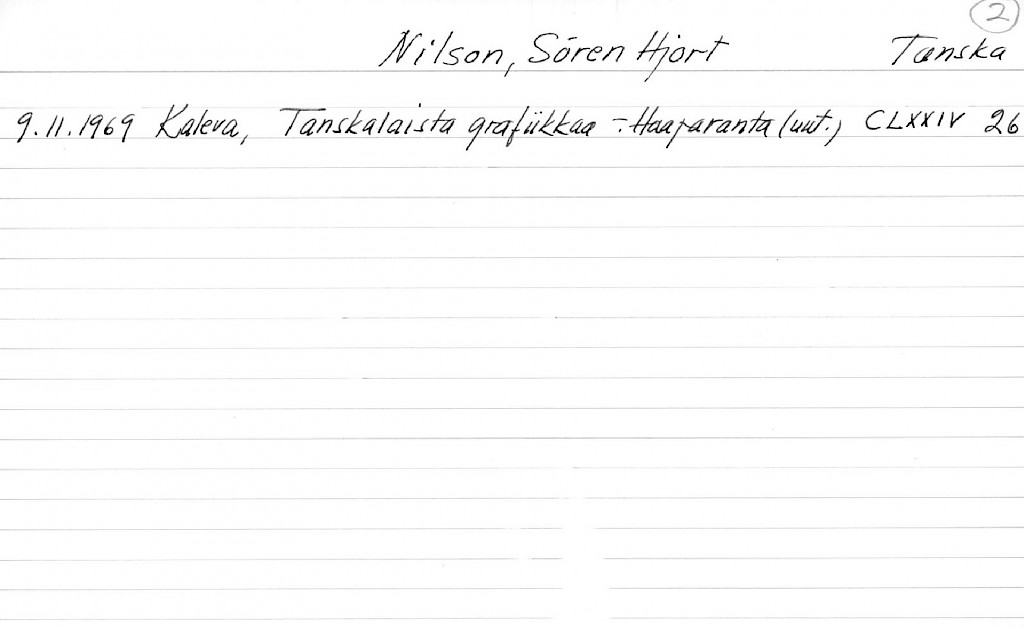 2
Nilson, Sören Hjort Tanska
9.11.1969 Kaleva, Tanskalaista grafiikkaa - Haaparanta (uut.) CLXXIV 26